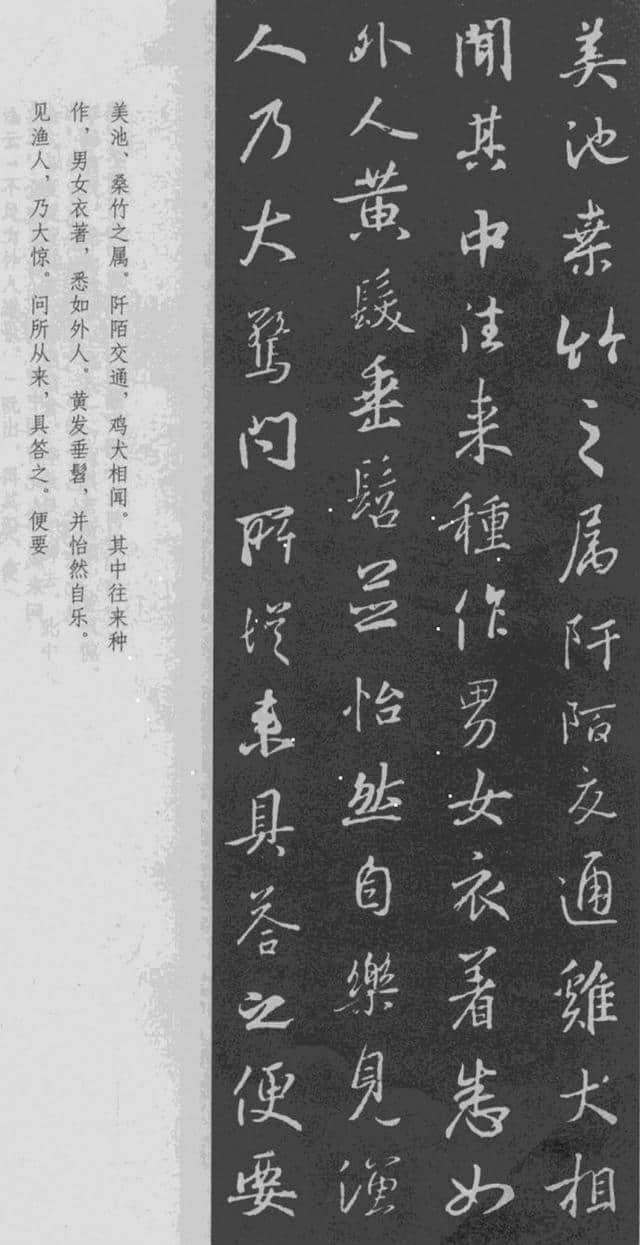 美池桑竹之属阡陌交通雞犬相
聞其中往来種作男女衣着悉如
外人黄髮垂髫並怡然自樂見漁
人乃大驚問所従来具答之便要
美池、桑竹之属。阡陌交通，鸡犬相闻。其中往来种
作，男女衣著，悉如外人。黄发垂髫，并怡然自乐。
见渔人，乃大惊。问所从来，具答之。便要